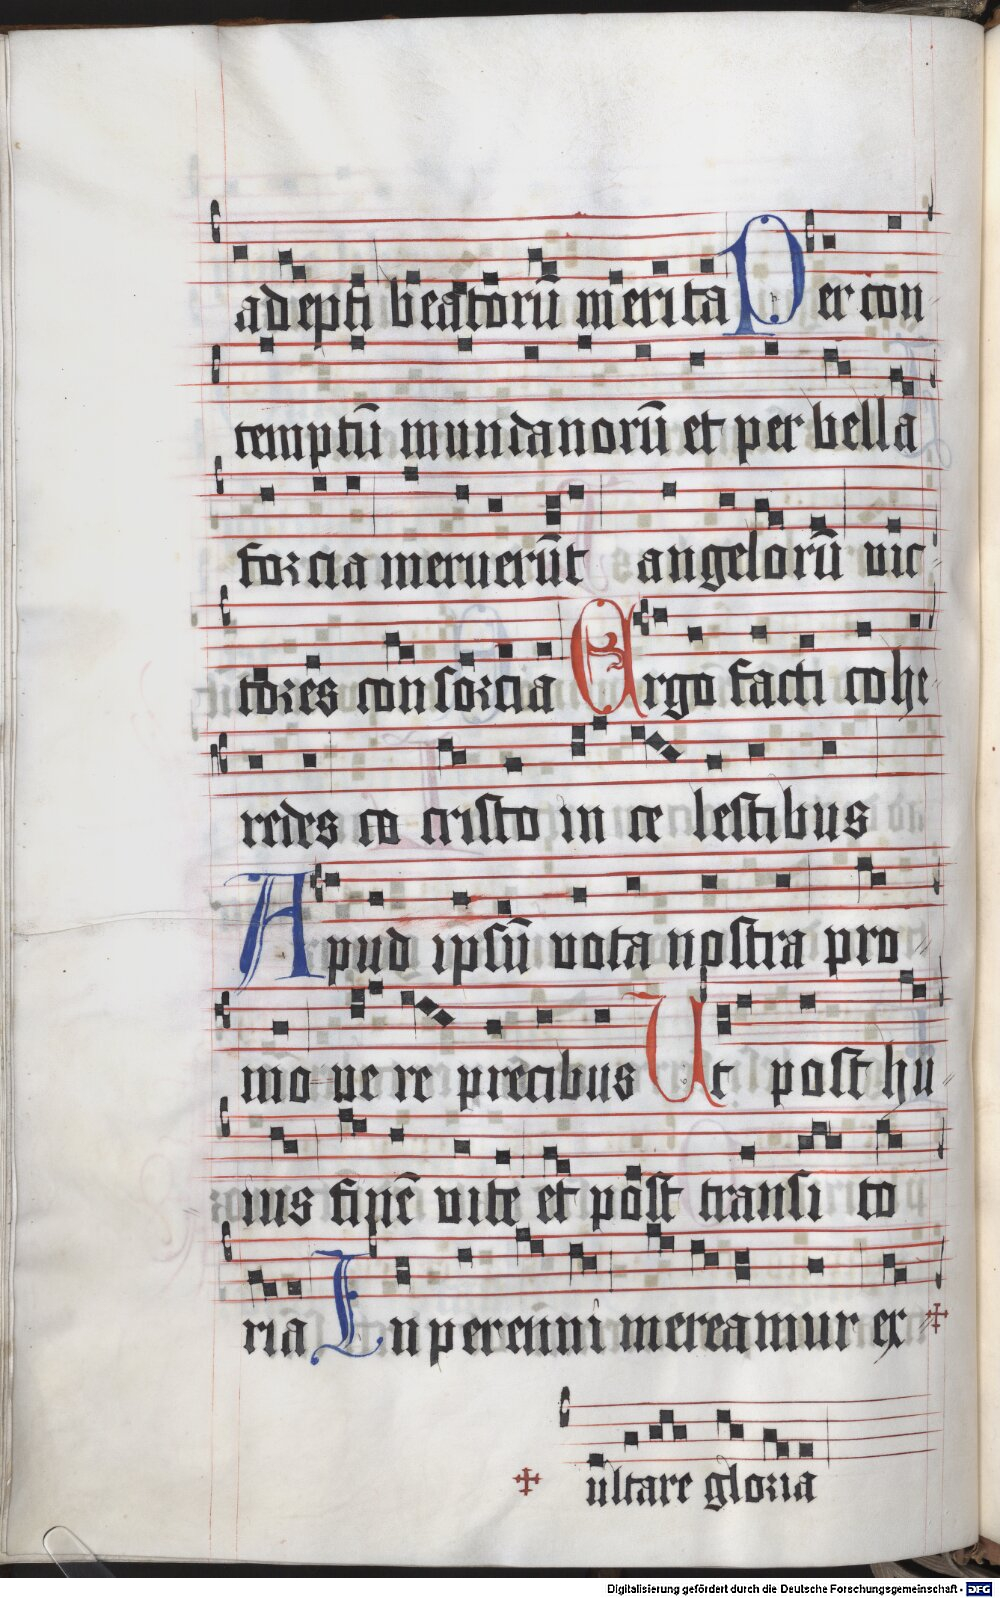 adepti beatorū merita Per con
temptū mundanorū et per bella
forcia meruerūt angelorū vic
tores consorcia Ergo facti cohe
redes co cristo in ce lestibus
Apud ipsū vota nostra pro
mo ve re precibus Ut post hu
ius finē vite et post transi to
ria In perenni mereamur ex
ultare gloria
Digitalisierung gefördert durch die Deutsche Forschungsgemeinschaft - DFG